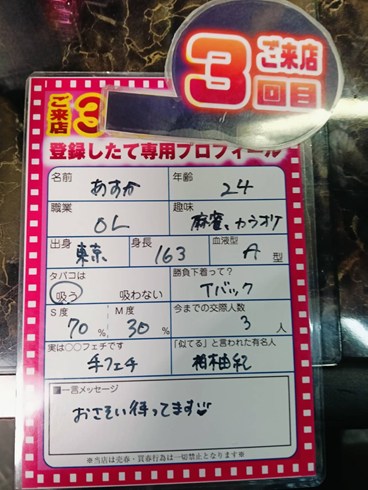 3
ご来店
回目
ご来店
3
登録したて専用プロフィール
名前
あすか
年齢
24
職業
OL
趣味
麻雀、カラオケ
出身
東京
身長
163
血液型
A 型
タバコは
吸う 吸わない
勝負下着って?
Tバック
S度
70 %
M度
30 %
今までの交際人数
3 人
実は○○フェチです
手フェチ
「似てる」と言われた有名人
柏木由紀
■一言メッセージ
おさそい待ってます
※当店は売春・買春行為は一切禁止となります※